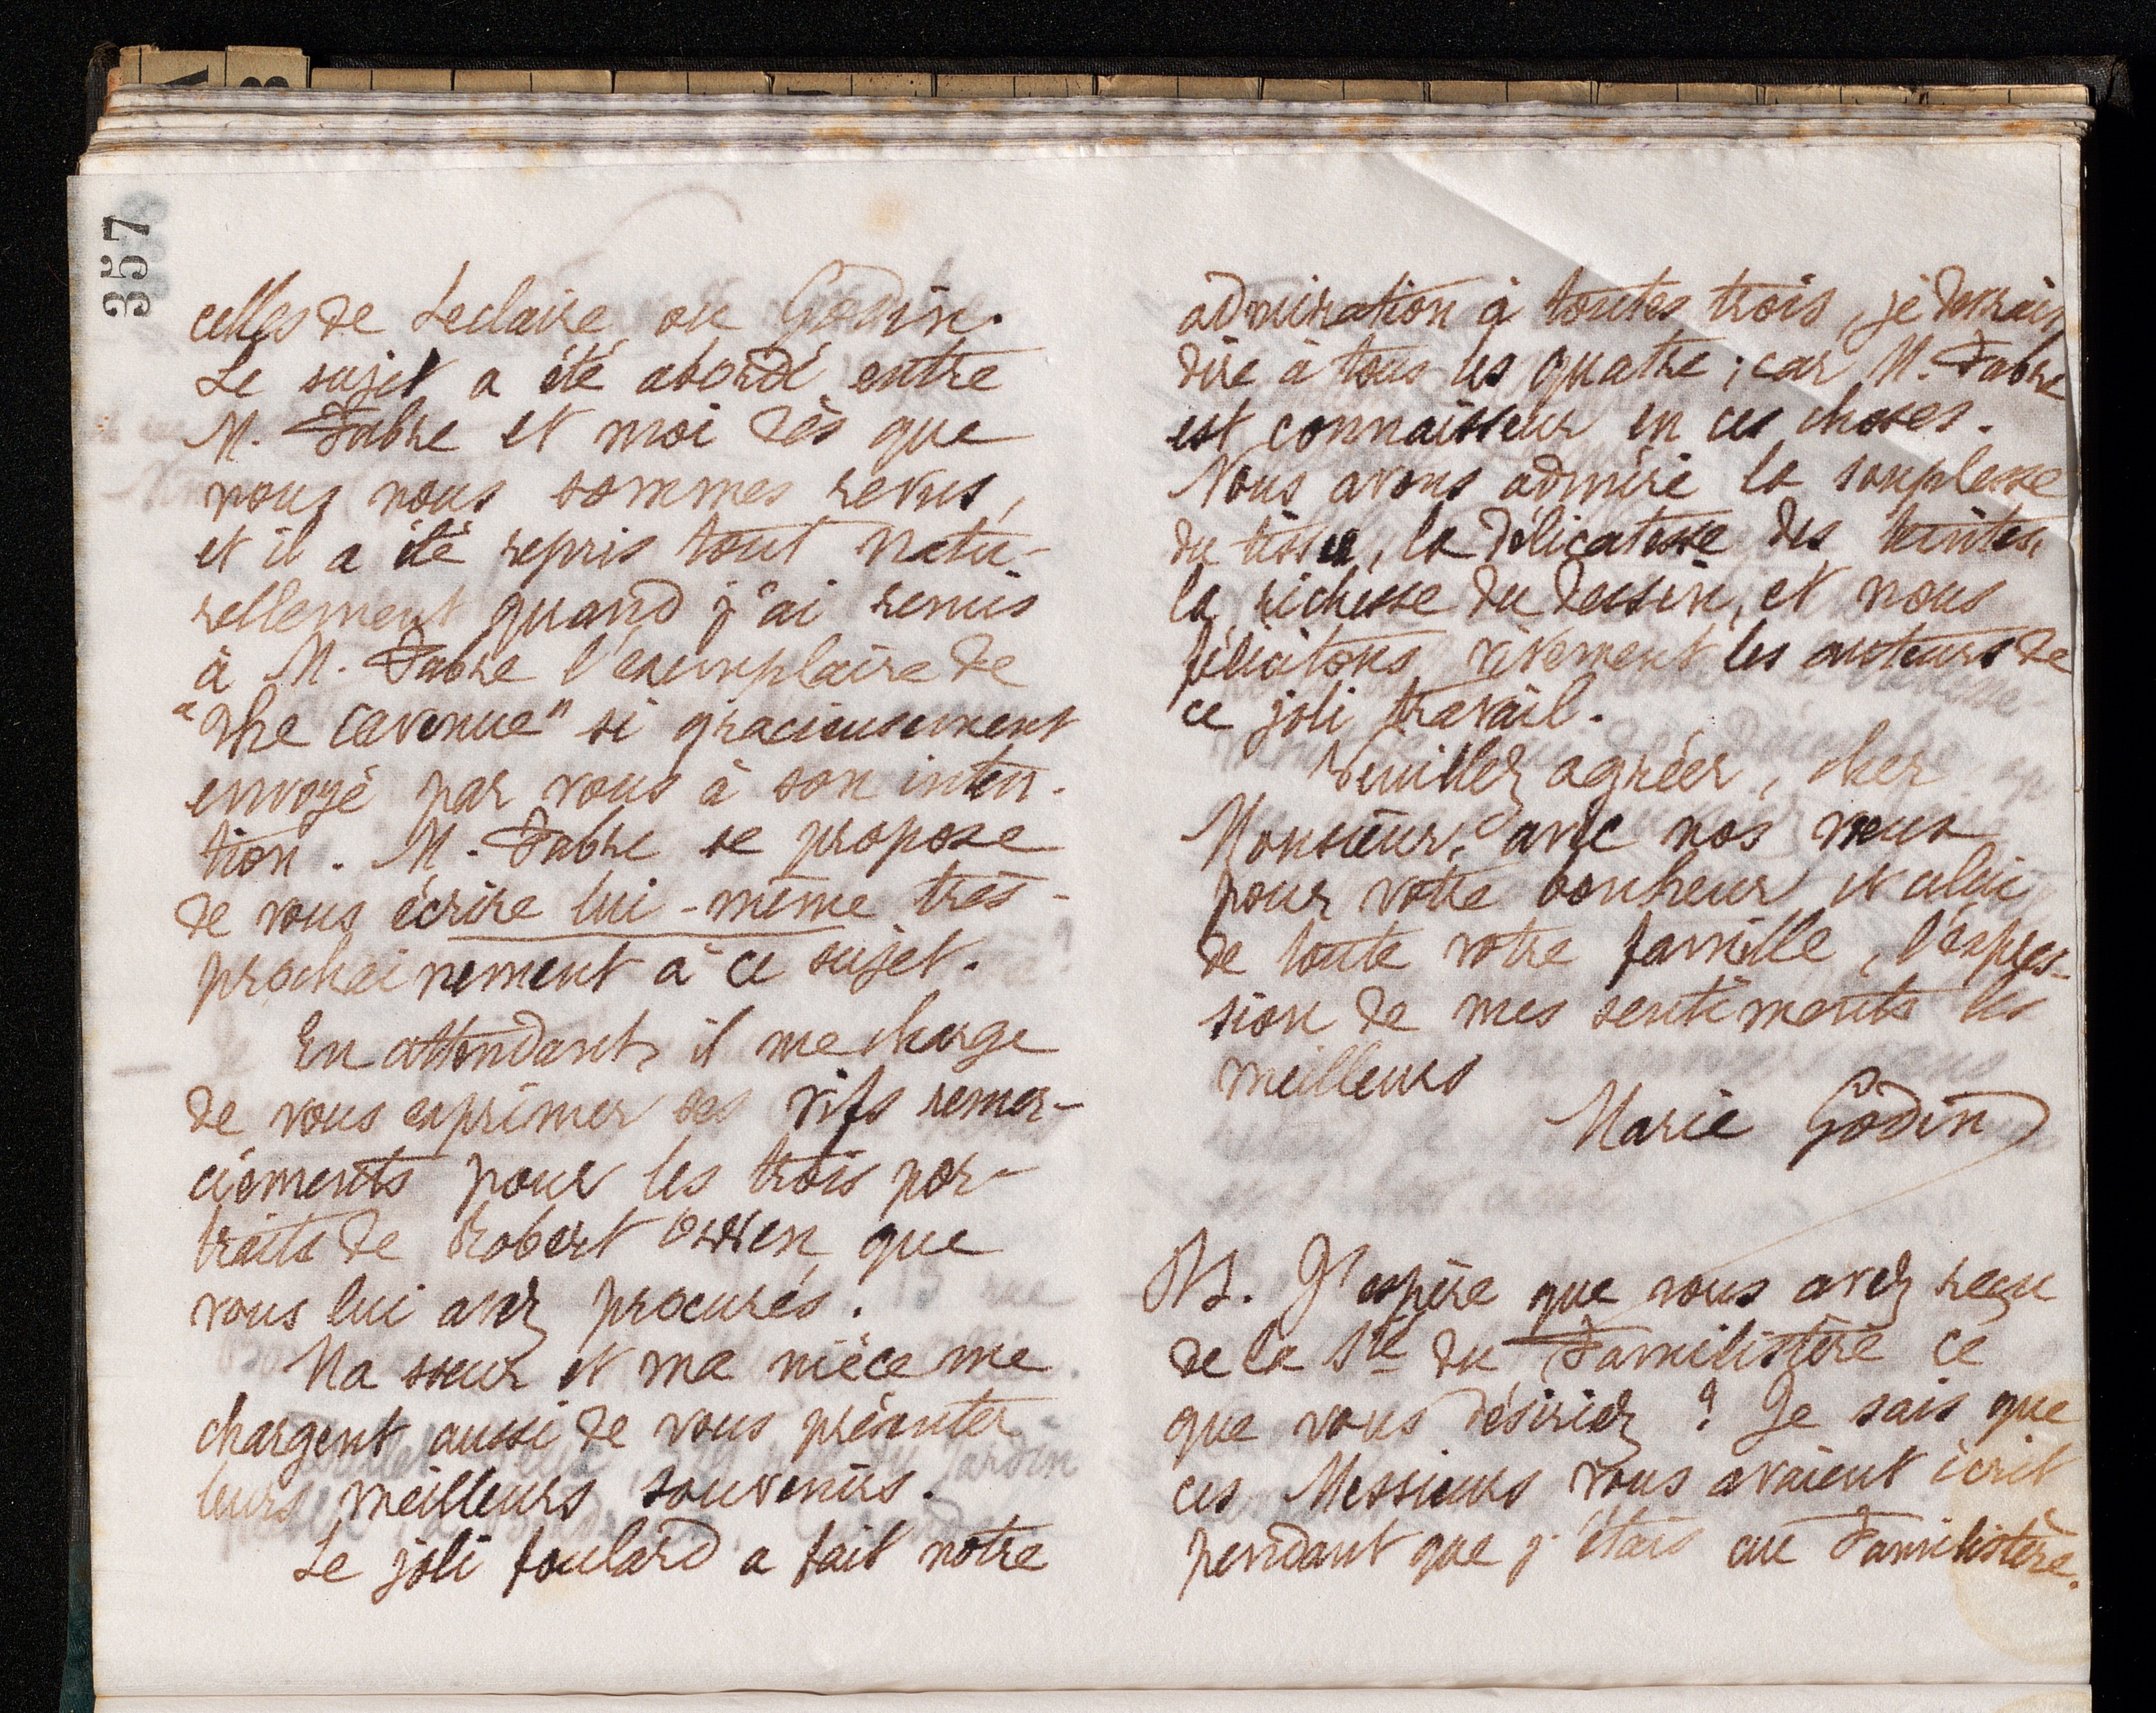 357
celles de Leclaire ou Godin.
Le sujet a été abordé entre
M. Fabre et moi dès que
nous nous sommes revus,
et il a été repris tout natu-
rellement quand j'ai remis
à M. Fabre l'exemplaire de
"The revenue" si gracieusement
envoyé par vous à son inten-
tion. M. Fabre se propose
de vous écrire lui-même très-
prochainement à ce sujet.
En attendant, il me charge
de vous exprimer ses vifs remer-
ciements pour les trois por-
traits de Robert Owen que
vous lui avez procurés.
Ma sœur et ma nièce me
chargent aussi de vous présenter
leurs meilleurs souvenirs.
Le joli foulard a fait notre
admiration à toutes trois, je devrais
dire à tous les quatre ; car M. Fabre
est connaisseur en ces choses.
Nous avons admiré la souplesse
du tissu, la délicatesse des teintes,
la richesse du dessin, et nous
félicitons vivement les auteurs de
ce joli travail.
Veuillez agréer, cher
Monsieur, avec nos vœux
pour votre bonheur et celui
de toute votre famille, l'expres-
sion de mes sentiments les
meilleurs
Marie Godin
PS. J'espère que vous avez reçu
de la Sté du Familistère ce
que vous désiriez ? Je sais que
ces Messieurs vous avaient écrit
pendant que j'étais au Familistère.